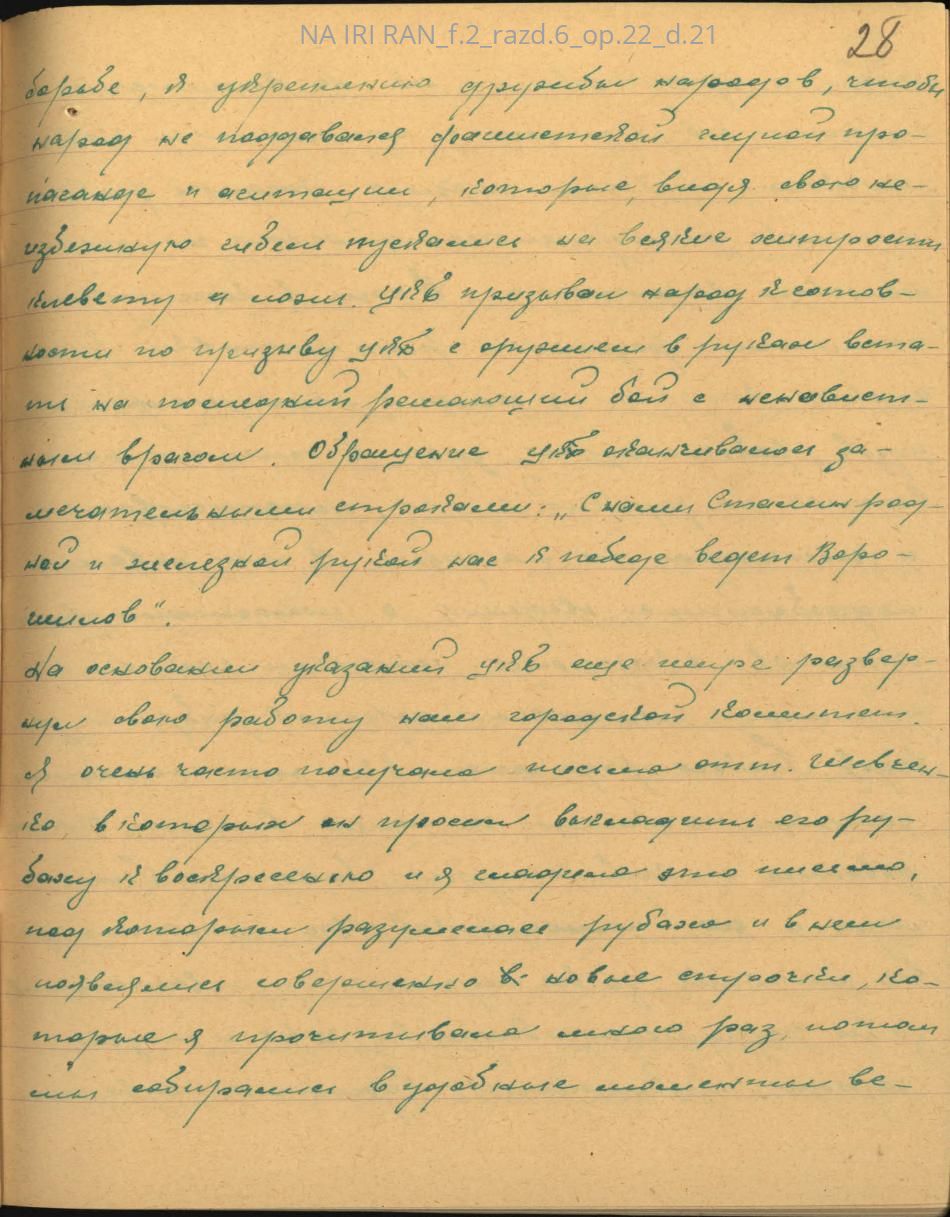 NA IRI RAN_f.2_razd.6_op.22_d.21
28
борьбе, к укреплению дружбы народов, чтобы
народ не поддавался фашистской глупой про-
паганде и агитации, которые, видя свою не-
избежную гибель пускались на всякие хитрости
клевету и ложь. УКВ призывал народ к готов-
ности по призыву УКВ с оружием в руках вста-
ть на последний решающий бой с ненавист-
ным врагом. Обращение УКВ оканчивалось за-
мечательными строками: „С нами Сталин род-
ной и железной рукой нас к победе ведет Воро-
шилов".
На основании указаний УКВ еще шире развер-
нул свою работу наш городской комитет.
Я очень часто получала письма от т. Шевчен-
ко, в которых он просил выгладить его ру-
баху к воскресенью и я гладила это письмо,
под которым разумелась рубаха и в нем
появлялись совершенно новые строчки, ко-
торые я прочитывала много раз, потом
мы собирались в удобные моменты ве-